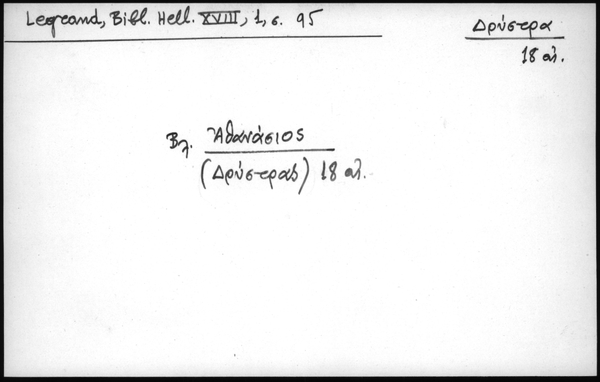 Legrand, Bibl. Hell. XVIII, 1, σ. 95
Δρύστρα
18 αι.
Βλ. Ἀθανάσιος
(Δρύστρας) 18 αι.